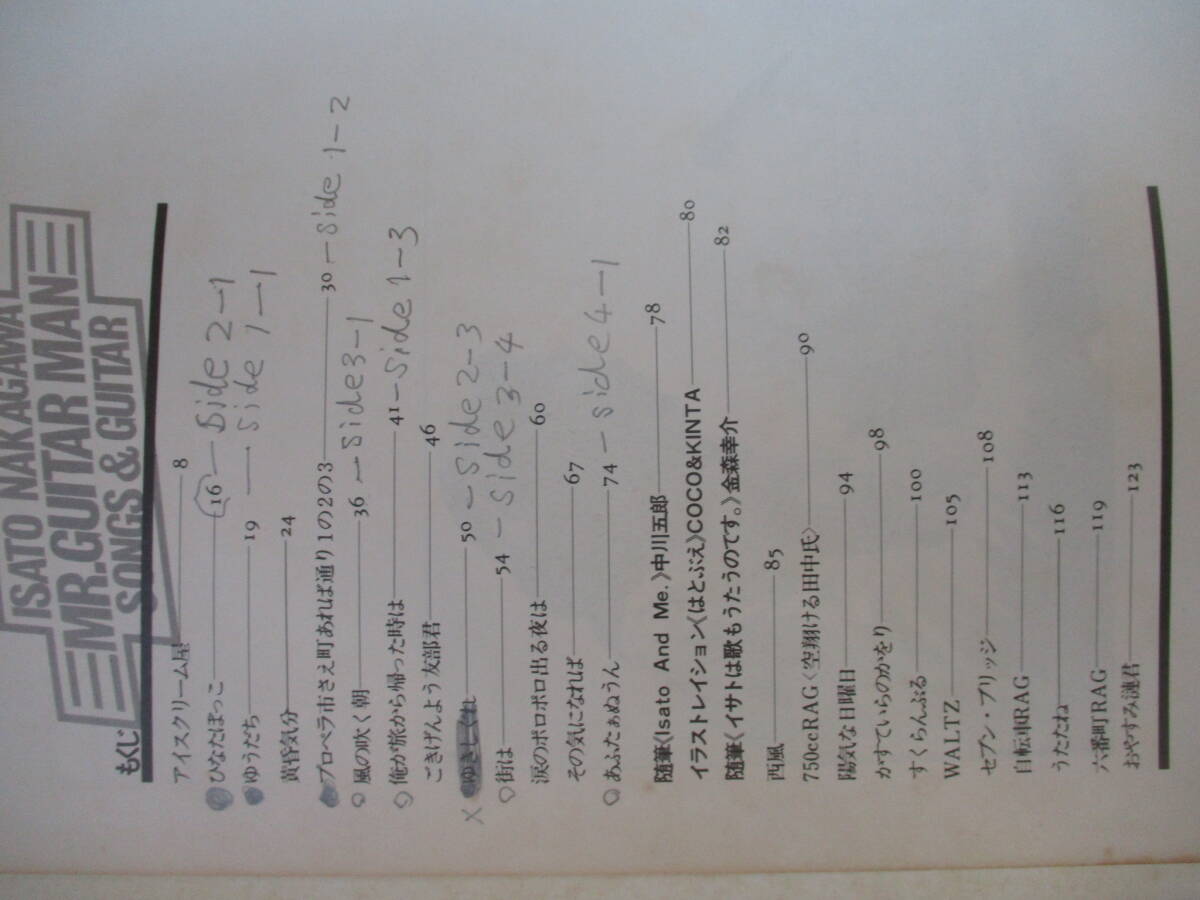 ISATO NAKAGAWA
MR.GUITAR MAN
SONGS & GUITAR
もくじ
アイスクリーム屋 8
ひなたぼっこ 16 — Side 2-1
ゆうだち 19 — Side 1-1
黄昏気分 24
プロペラ市さえ町あれば通り1の2の3 30 — Side 1-2
風の吹く朝 36 — Side 3-1
俺が旅から帰った時は 41 — Side 1-3
ごきげんよう友部君 46
× ゆきしぐれ 50 — Side 2-3
街は 54 — Side 3-4
涙のポロポロ出る夜は 60
その気になれば 67
あふたぁぬうん 74 — Side 4-1
随筆〈Isato And Me.〉中川五郎 78
イラストレイション〈はとぶえ〉COCO&KINTA 80
随筆〈イサトは歌もうたうのです。〉金森幸介 82
西風 85
750ccRAG〈空翔ける田中氏〉 90
陽気な日曜日 94
かすていらのかをり 98
すくらんぶる 100
WALTZ 105
セブン・ブリッジ 108
自転車RAG 113
うたたね 116
六番町RAG 119
おやすみ漣君 123